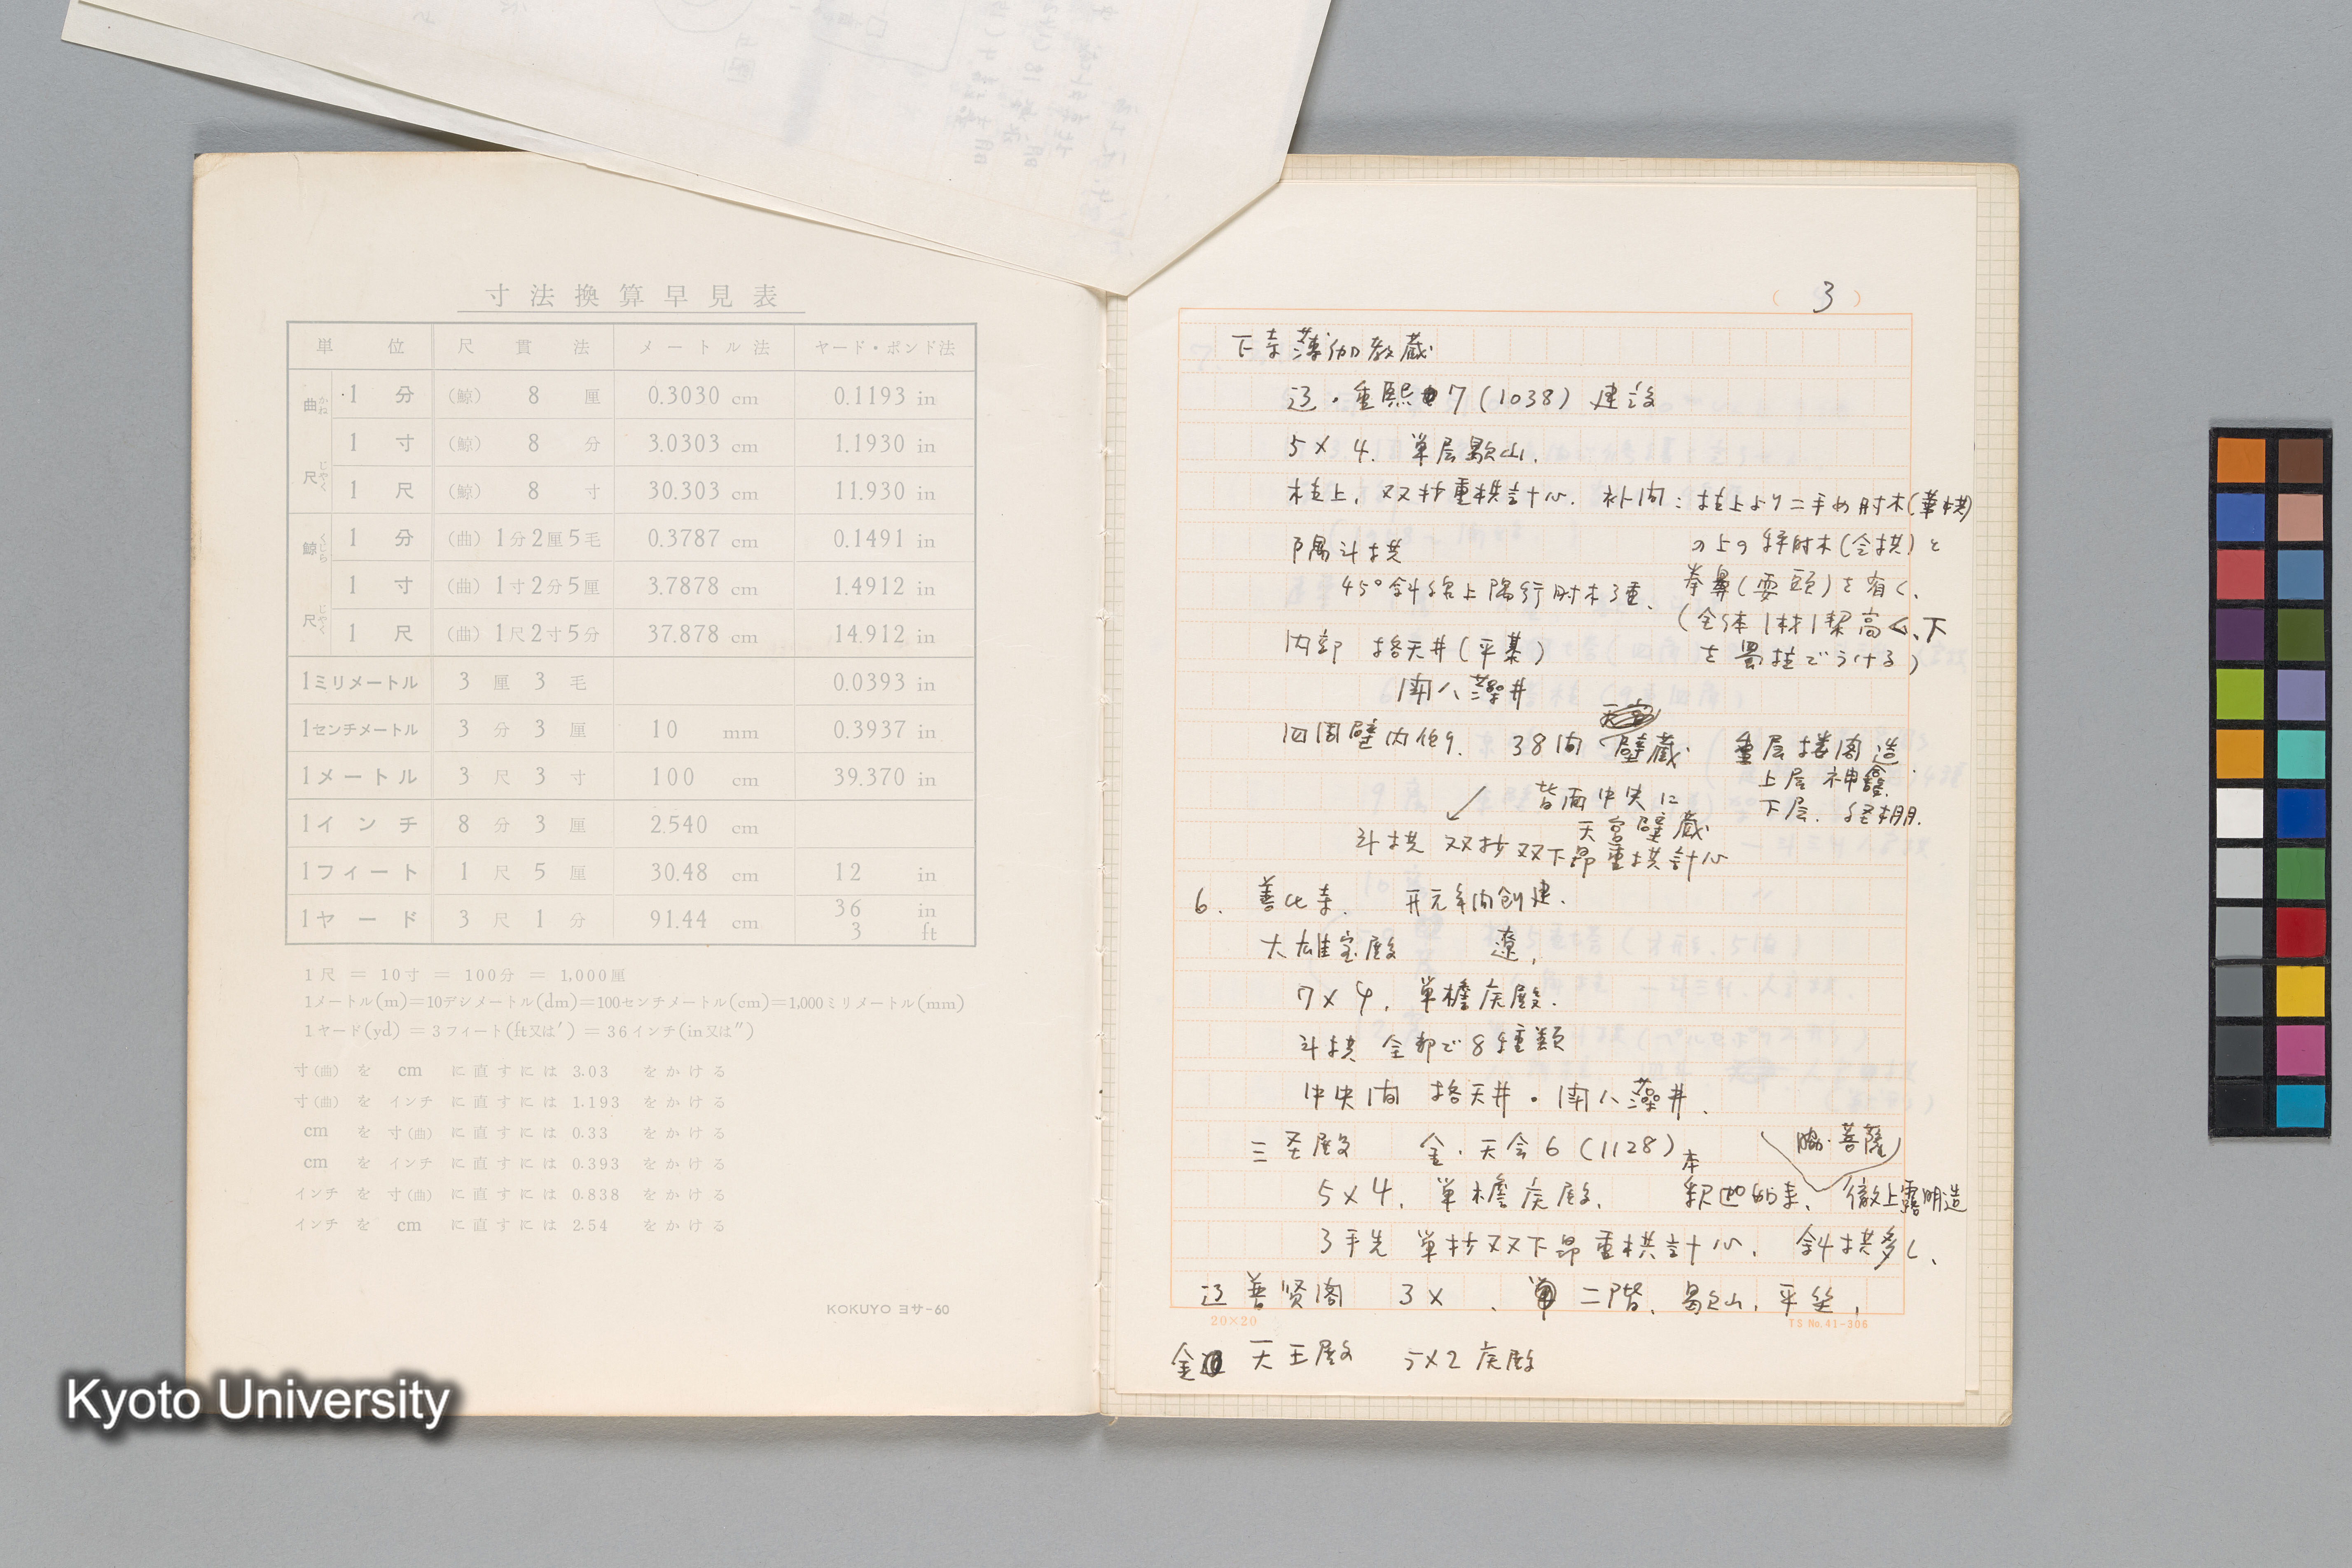 寸法換算早見表
単位 尺貫法 メートル法 ヤード・ポンド法
曲尺 かねじゃく
1分 (鯨) 8厘 0.3030 cm 0.1193 in
1寸 (鯨) 8分 3.0303 cm 1.1930 in
1尺 (鯨) 8寸 30.303 cm 11.930 in
鯨尺 くじらじゃく
1分 (曲) 1分2厘5毛 0.3787 cm 0.1491 in
1寸 (曲) 1寸2分5厘 3.7878 cm 1.4912 in
1尺 (曲) 1尺2寸5分 37.878 cm 14.912 in
1ミリメートル 3厘3毛 0.0393 in
1センチメートル 3分3厘 10 mm 0.3937 in
1メートル 3尺3寸 100 cm 39.370 in
1インチ 8分3厘 2.540 cm
1フィート 1尺5厘 30.48 cm 12 in
1ヤード 3尺1分 91.44 cm 36 in 3 ft
1尺 = 10寸 = 100分 = 1,000厘
1メートル(m)=10デシメートル(dm)=100センチメートル(cm)=1,000ミリメートル(mm)
1ヤード(yd) = 3フィート(ft又は′) = 36インチ(in又は″)
寸(曲) を cm に直すには 3.03 をかける
寸(曲) を インチ に直すには 1.193 をかける
cm を 寸(曲) に直すには 0.33 をかける
cm を インチ に直すには 0.393 をかける
インチ を 寸(曲) に直すには 0.838 をかける
インチ を cm に直すには 2.54 をかける
KOKUYO ヨサ-60
( 3 )
下寺薄伽教蔵
辽・重熙7(1038) 建設
5×4. 単层歇山.
柱上, 双抄重栱計心. 補間:柱上より二手め肘木(華栱)
の上の秤肘木(令栱)と
拳鼻(耍頭)を有く、
(全体1材1栔高く、下
を蜀柱でうける)
隅斗栱
45°斜線上隅行肘木3重、
内部 格天井(平棊)
闘八藻井
四周壁内他り. 38間 壁蔵 重层楼閣造
上层 神龕.
下层. 経棚.
背面中央に
天宮壁蔵
斗栱 双抄双下昂重栱計心
6. 善化寺. 开元年間創建.
大雄宝殿 遼,
7×4, 単檐庑殿.
斗栱 全部で8種類
中央間 格天井・闘八藻井.
三圣殿 金・天会6(1128)
脇・菩薩
5×4, 単檐庑殿. 本釈迦如来、徹上露明造
3手先 単抄双下昂重栱計心. 斜栱多く、
辽 普賢閣 3× 、 二階、歇山, 平坐,
20×20
TS No.41-306
金 天王殿 5×2 庑殿
Kyoto University